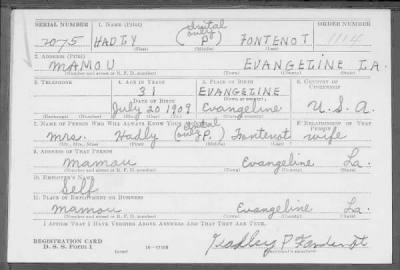 SERIAL NUMBER 1. NAME (Print) ORDER NUMBER
2075 HADLY (initial only P) FONTENOT 1114
(First) (Middle) (Last)
2. ADDRESS (Print)
MAMOU EVANGELINE LA.
(Number and street or R. F. D. number) (Town) (County) (State)
3. TELEPHONE 4. AGE IN YEARS 5. PLACE OF BIRTH 6. COUNTRY OF CITIZENSHIP
31 EVANGELINE
DATE OF BIRTH (Town or county)
July 20 1909 Evangeline U.S.A.
(Exchange) (Number) (Mo.) (Day) (Yr.) (State or country)
7. NAME OF PERSON WHO WILL ALWAYS KNOW YOUR ADDRESS 8. RELATIONSHIP OF THAT PERSON
Mrs. Hadly (initial only P.) Fontenot wife
(Mr., Mrs., Miss) (First) (Middle) (Last)
9. ADDRESS OF THAT PERSON
Mamou Evangeline La.
(Number and street or R. F. D. number) (Town) (County) (State)
10. EMPLOYER'S NAME
Self
11. PLACE OF EMPLOYMENT OR BUSINESS
Mamou Evangeline La.
(Number and street or R. F. D. number) (Town) (County) (State)
I AFFIRM THAT I HAVE VERIFIED ABOVE ANSWERS AND THAT THEY ARE TRUE.
REGISTRATION CARD
D. S. S. Form 1 Hadley P Fontenot
(over) (Registrant's signature)